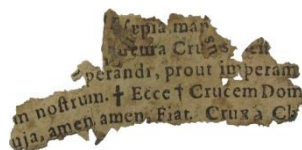 sepia man
cura Cru
perandi, prout imperam
m nostrum. † Ecce † Crucem Dom
uja, amen, amen, Fiat. Crux a Ch